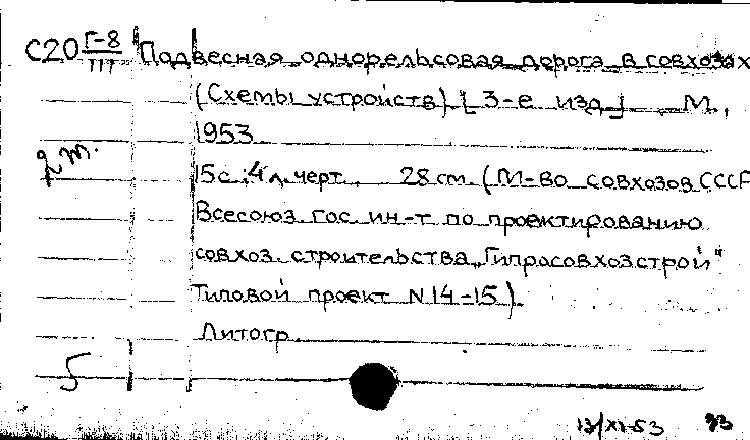 С20 Г-8 Подвесная однорельсовая дорога в совхозах
III
(Схемы устройств) [3-е изд.] М.,
1953
15с.; 4 л. черт. 28 см. (М-во совхозов СССР
Всесоюз. гос. ин-т по проектированию
совхоз. строительства „Гипросовхозстрой"
Типовой проект N 14-15)
Литогр.
5
12/XI-53 93